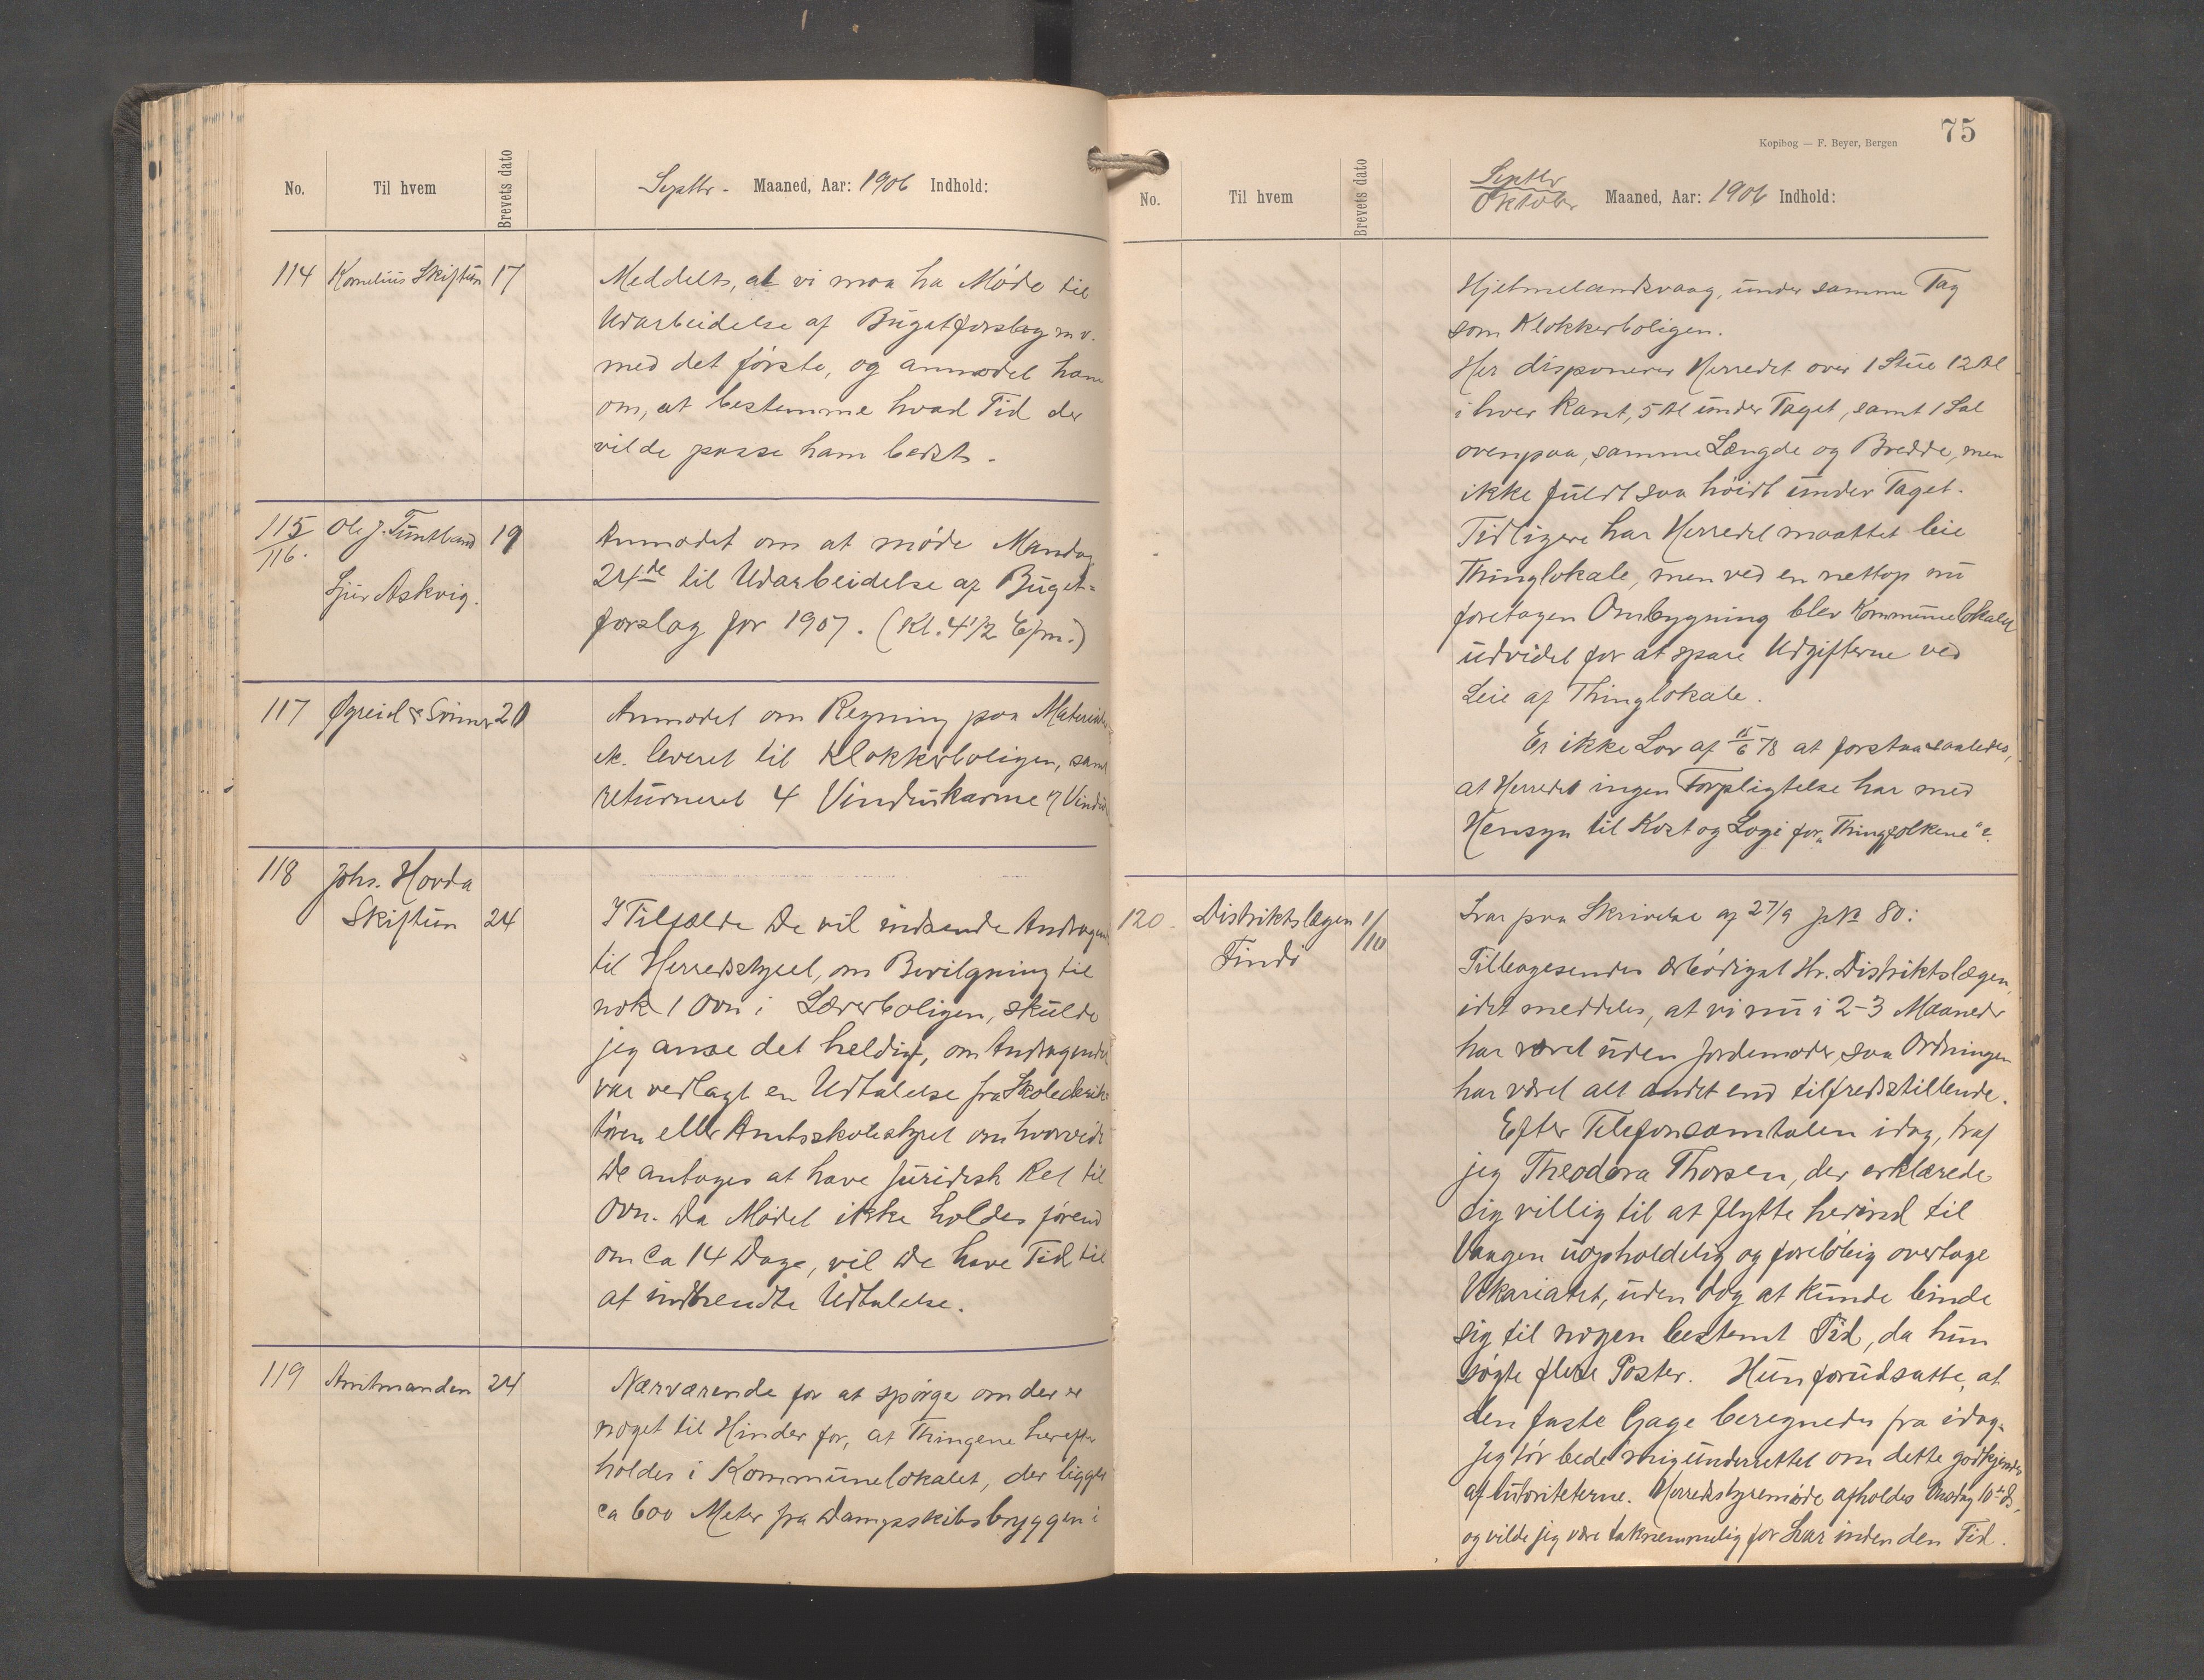 No. Til hvem Brevets dato Septbr. Maaned, Aar: 1906 Indhold:
114 Kornelius Skiftun 17 Meddelts, at vi maa ha Møde til
Udarbeidelse af Bugetforslag m v.
med det første, og anmodet ham
om, at bestemme hvad Tid der
vilde passe ham bedst.
115/116. Ole J. Tuntland 19 Anmodet om at møde Mandag
Sjur Askvig. 24de til Udarbeidelse af Buget=
forslag for 1907. (Kl. 4 1/2 Efm.)
117 Øgreid & Sønner 20 Anmodet om Regning paa Materialer
etc. leveret til Klokkerboligen, samt
returneret 4 Vinduskarme
118 Johs. Hovda
Skiftun 24 I Tilfælde De vil indsende Andragende
til Herredsstyret, om Bevilgning til
nok 1 Ovn i Lærerboligen, skulde
jeg anse det heldigt, om Andragendet
var vedlagt en Udtalelse fra Skoledirek
tøren eller Amtsskolestyret om hvorvidt
De antages at have juridisk Ret til
Ovn. Da Mødet ikke holdes førend
om ca 14 Dage, vil De have Tid til
at indhendte Udtalelse.
119 Amtmanden 24 Nærværende for at spørge om der er
noget til Hinder for, at Thingene herefter
holdes i Kommunelokalet, der ligger
ca 600 Meter fra Dampskibsbryggen i
75
Kopibog — F. Beyer, Bergen
No. Til hvem Brevets dato Septbr/Oktober Maaned, Aar: 1906 Indhold:
Hjelmelandsvaag, under samme Tag
som Klokkerboligen.
Her disponerer Herredet over 1 Stue 12 Al
i hver Kant, 5 Al under Taget, samt 1 Sal
ovenpaa, samme Længde og Bredde, men
ikke fuldt saa høidt under Taget.
Tidligere har Herredet maattet leie
Thinglokale, men ved en nettop nu
foretagen Ombygning blev Kommunelokalet
udvidet for at spare Udgifterne ved
Leie af Thinglokale.
Er ikke Lov af 15/6 78 at forstaa saaledes,
at Herredet ingen Forpligtelse har med
Hensyn til Kost og Logi for „Thingfolkene"?
120. Distriktslægen 1/10 Svar paa Skrivelse af 27/9 J№ 80:
Findø Tilbagesendes ærbødigst Hr. Distriktslægen,
idet meddeles, at vi nu i 2-3 Maaneder
har været uden Jordemoder, saa Ordningen
har været alt andet end tilfredsstillende.
Efter Telefonsamtalen idag, traf
jeg Theodora Thorsen, der erklærede
sig villig til at flytte herind til
Vaagen uopholdelig og foreløbig overtage
Vikariatet, uden dog at kunde binde
sig til nogen bestemt Tid, da hun
søgte flere Poster. Hun forudsatte, at
den faste Gage beregnedes fra idag.
Jeg tør bede mig underrettet om dette godkjendes
af Autoriteterne. Herredsstyremøde afholdes Onsdag 10de ds,
og vilde jeg være taknemmelig for Svar inden den Tid.